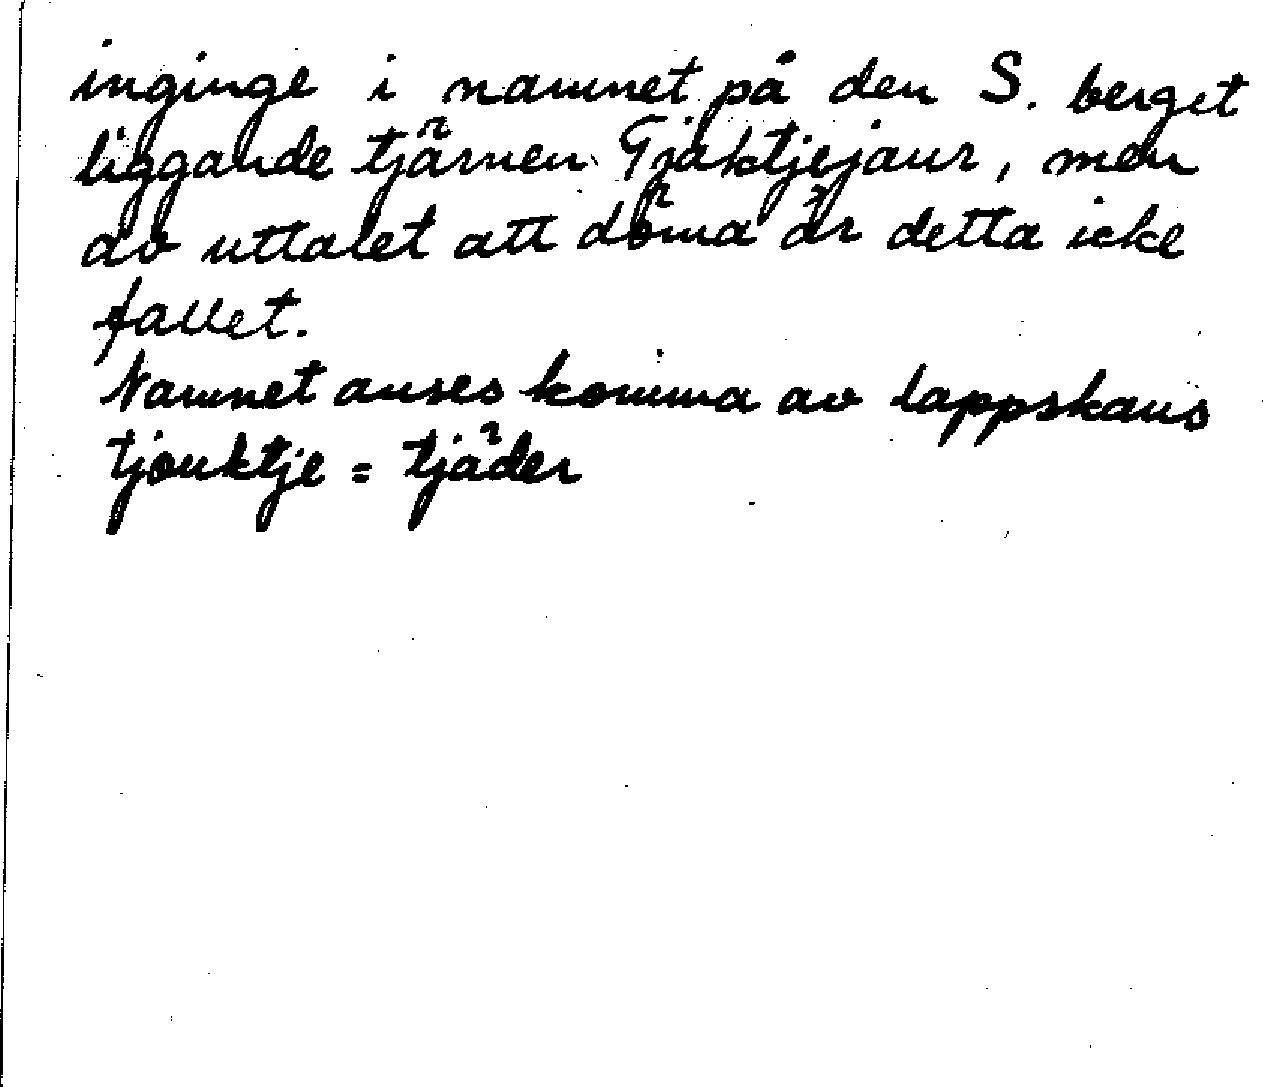 inginge i namnet på den S. berget
liggande tjärnen Tjaktjejaur, men
av uttalet att döma är detta icke
fallet.
Namnet anses komma av lappskans
tjouktje = tjäder